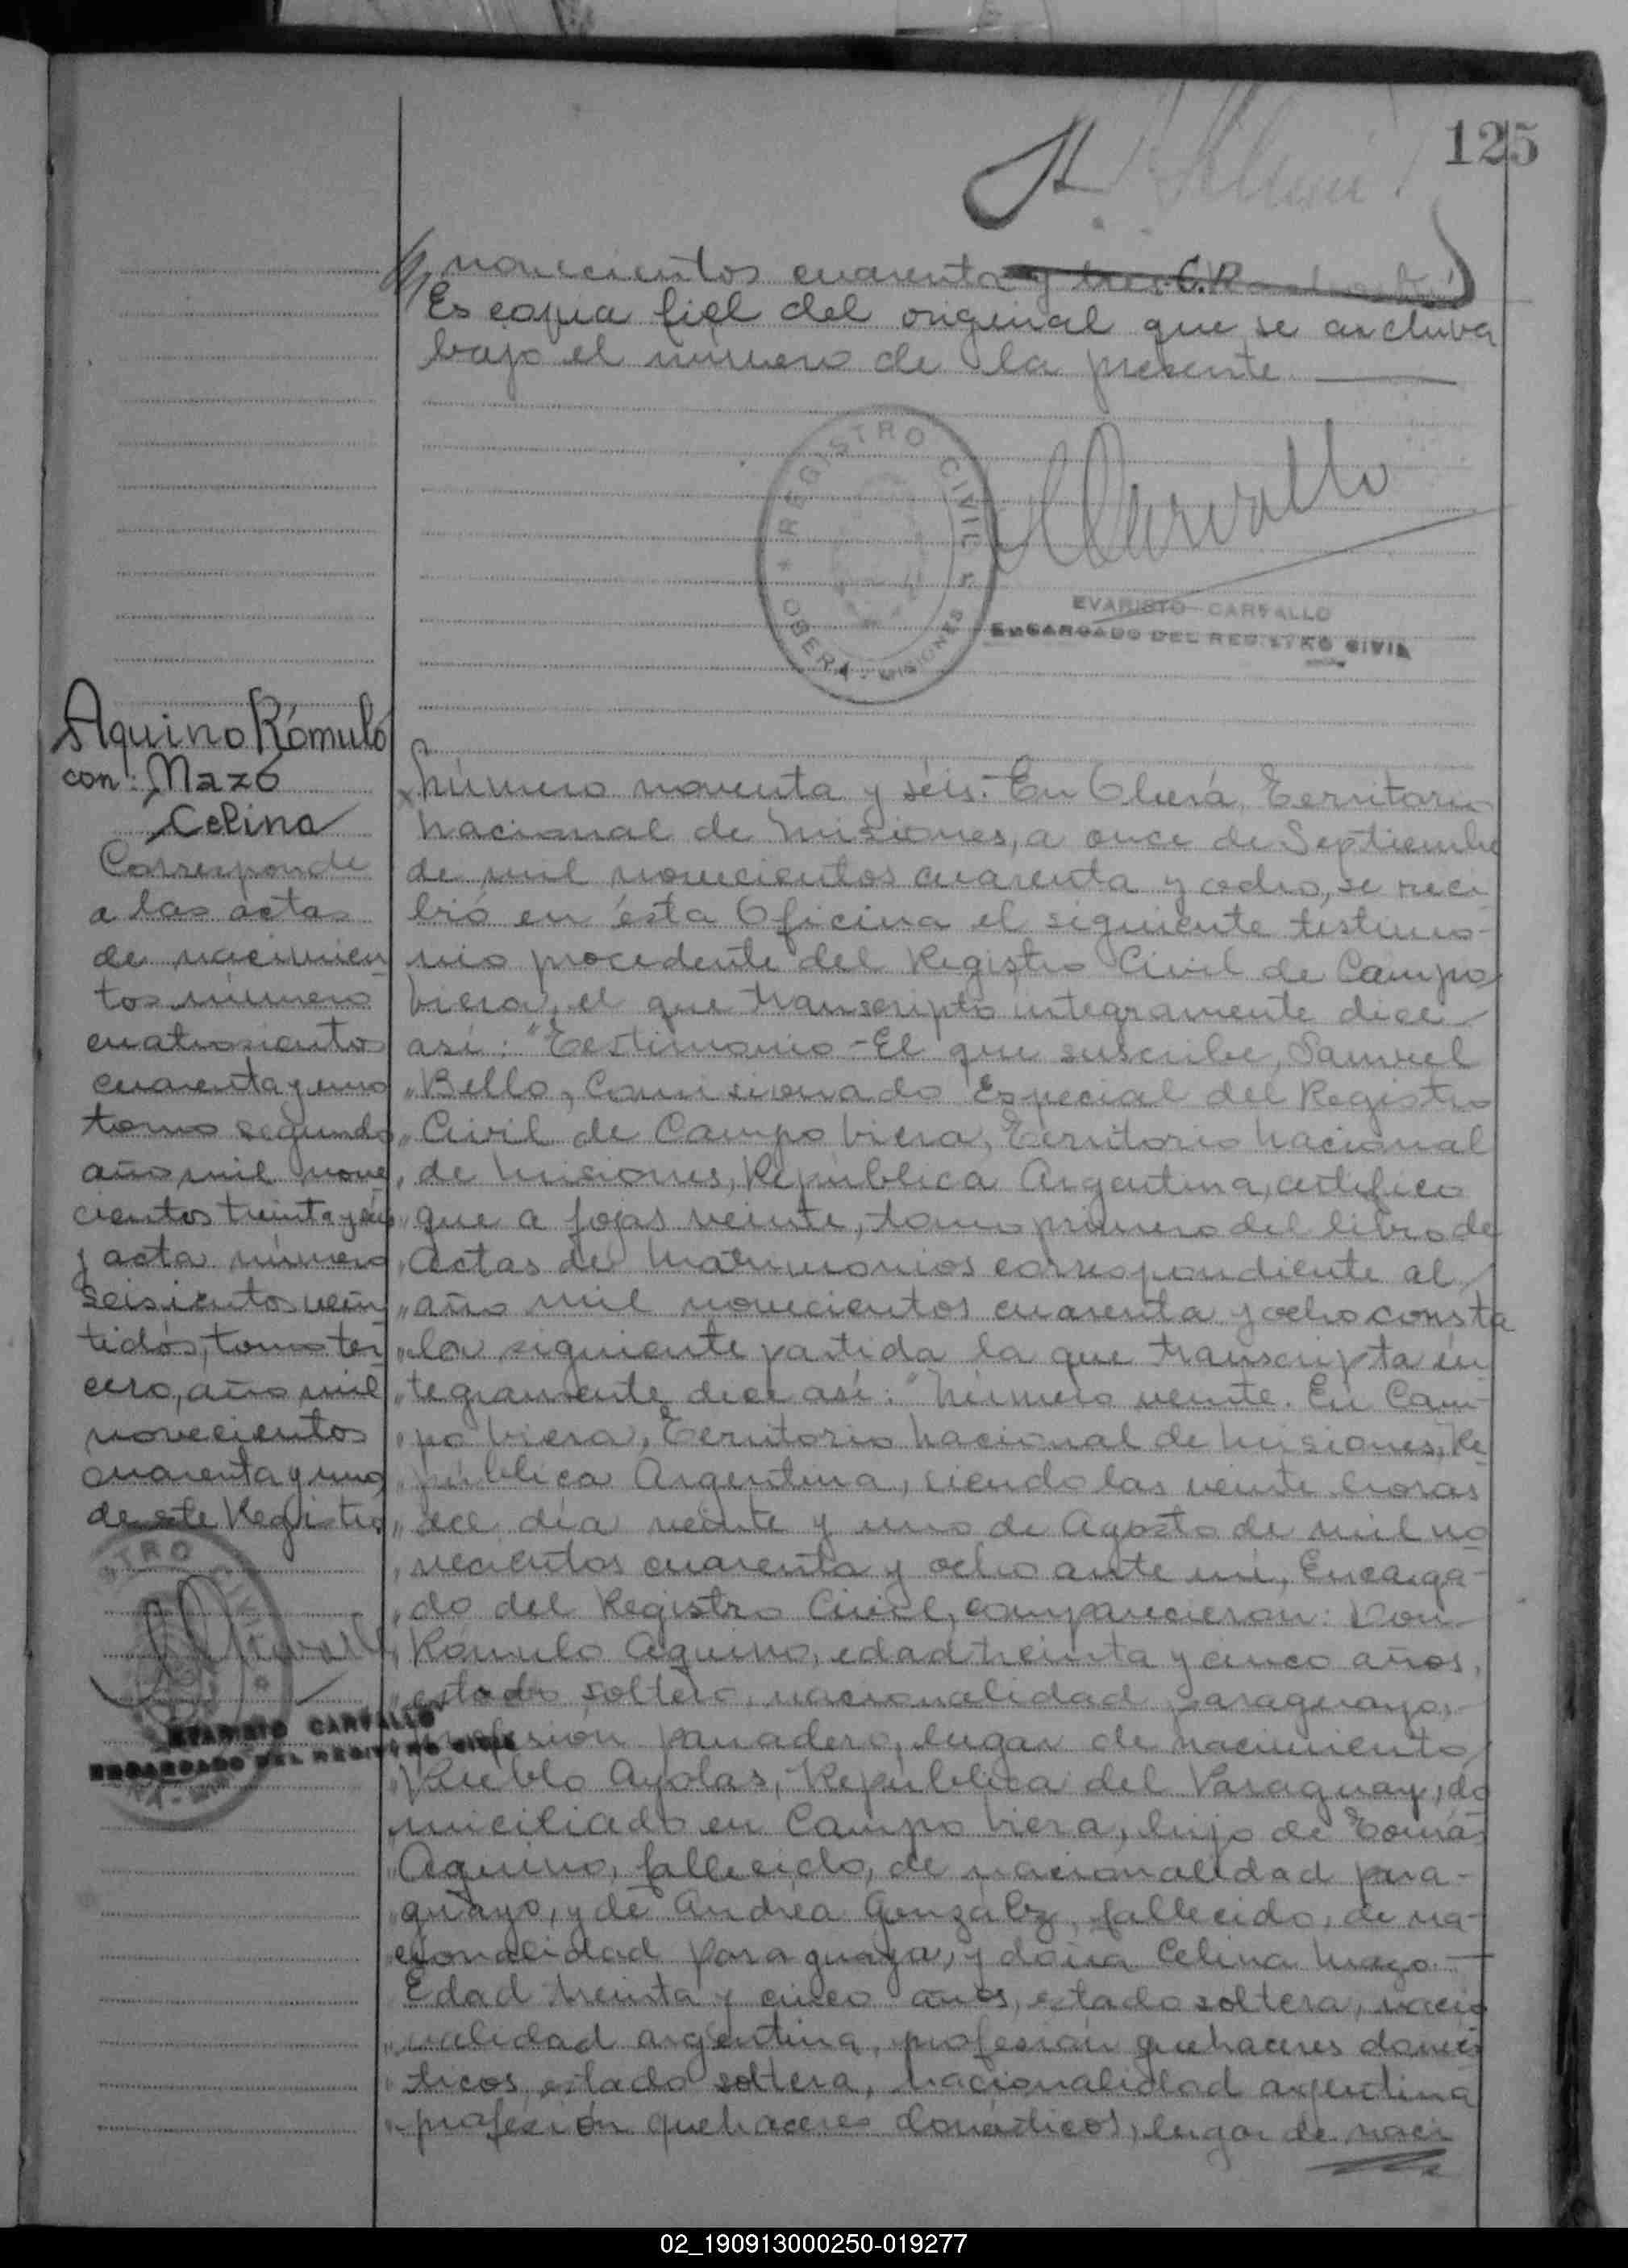 125
novecientos cuarenta y tres. C.R.
Es copia fiel del original que se archiva
bajo el número de la presente
REGISTRO CIVIL
OBERA - MISIONES
EVARISTO CARVALLO
ENCARGADO DEL REGISTRO CIVIL
Aquino Rómulo
con: Mazó
Celina
Corresponde
a las actas
de nacimien
tos número
cuatrosientos
cuarenta y uno
tomo segundo
año mil nove
cientos treinta y
y acta número
seisientos vein
tidós, tomo ter
cero, año mil
novecientos
cuarenta y uno
de este Registro
EVARISTO CARVALLO
ENCARGADO DEL REGISTRO CIVIL
Número noventa y séis.- En Oberá, Territorio
Nacional de Misiones, a once de Septiembre
de mil novecientos cuarenta y ocho, se reci
bió en ésta Oficina el siguiente testimo-
nio procedente del Registro Civil de Campo
Viera, el que transcripto integramente dice
así: "Testimonio - El que suscribe, Samuel
" Bello, Comisionado Especial del Registro
" Civil de Campo Viera, Territorio Nacional
" de Misiones, República Argentina, certifico
" que a fojas veinte, tomo primero del libro de
" Actas de Matrimonios correspondiente al
" año mil novecientos cuarenta y ocho consta
" la siguiente partida la que transcripta ín
" tegramente dice así: "Número veinte. En Cam-
" po Viera, Territorio Nacional de Misiones, Re
" pública Argentina, siendo las veinte horas
" del día veinte y uno de Agosto de mil no
" vecientos cuarenta y ocho ante mí, Encarga-
" do del Registro Civil, comparecieron: Don
" Rómulo Aquino, edad treinta y cinco años,
" estado soltero, nacionalidad paraguayo,
" profesion panadero, lugar de nacimiento
" Pueblo Ayolas, República del Paraguay, do
miciliado en Campo Viera, hijo de Tomás
" Aquino, fallecido, de nacionalidad para-
" guayo, y de Andréa González, fallecido, de na-
cionalidad paraguaya, y doña Celina Mazo.-
Edad treinta y cinco años, estado soltera, nacio
" nalidad argentina, profesión quehaceres domés
" ticos, estado soltera, nacionalidad argentina
" profesión quehaceres domésticos, lugar de naci
02_190913000250-019277